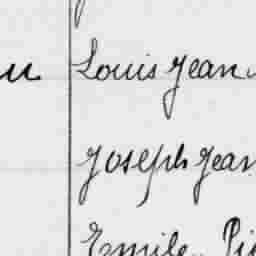 Louis Jean
Joseph Jean
Emile